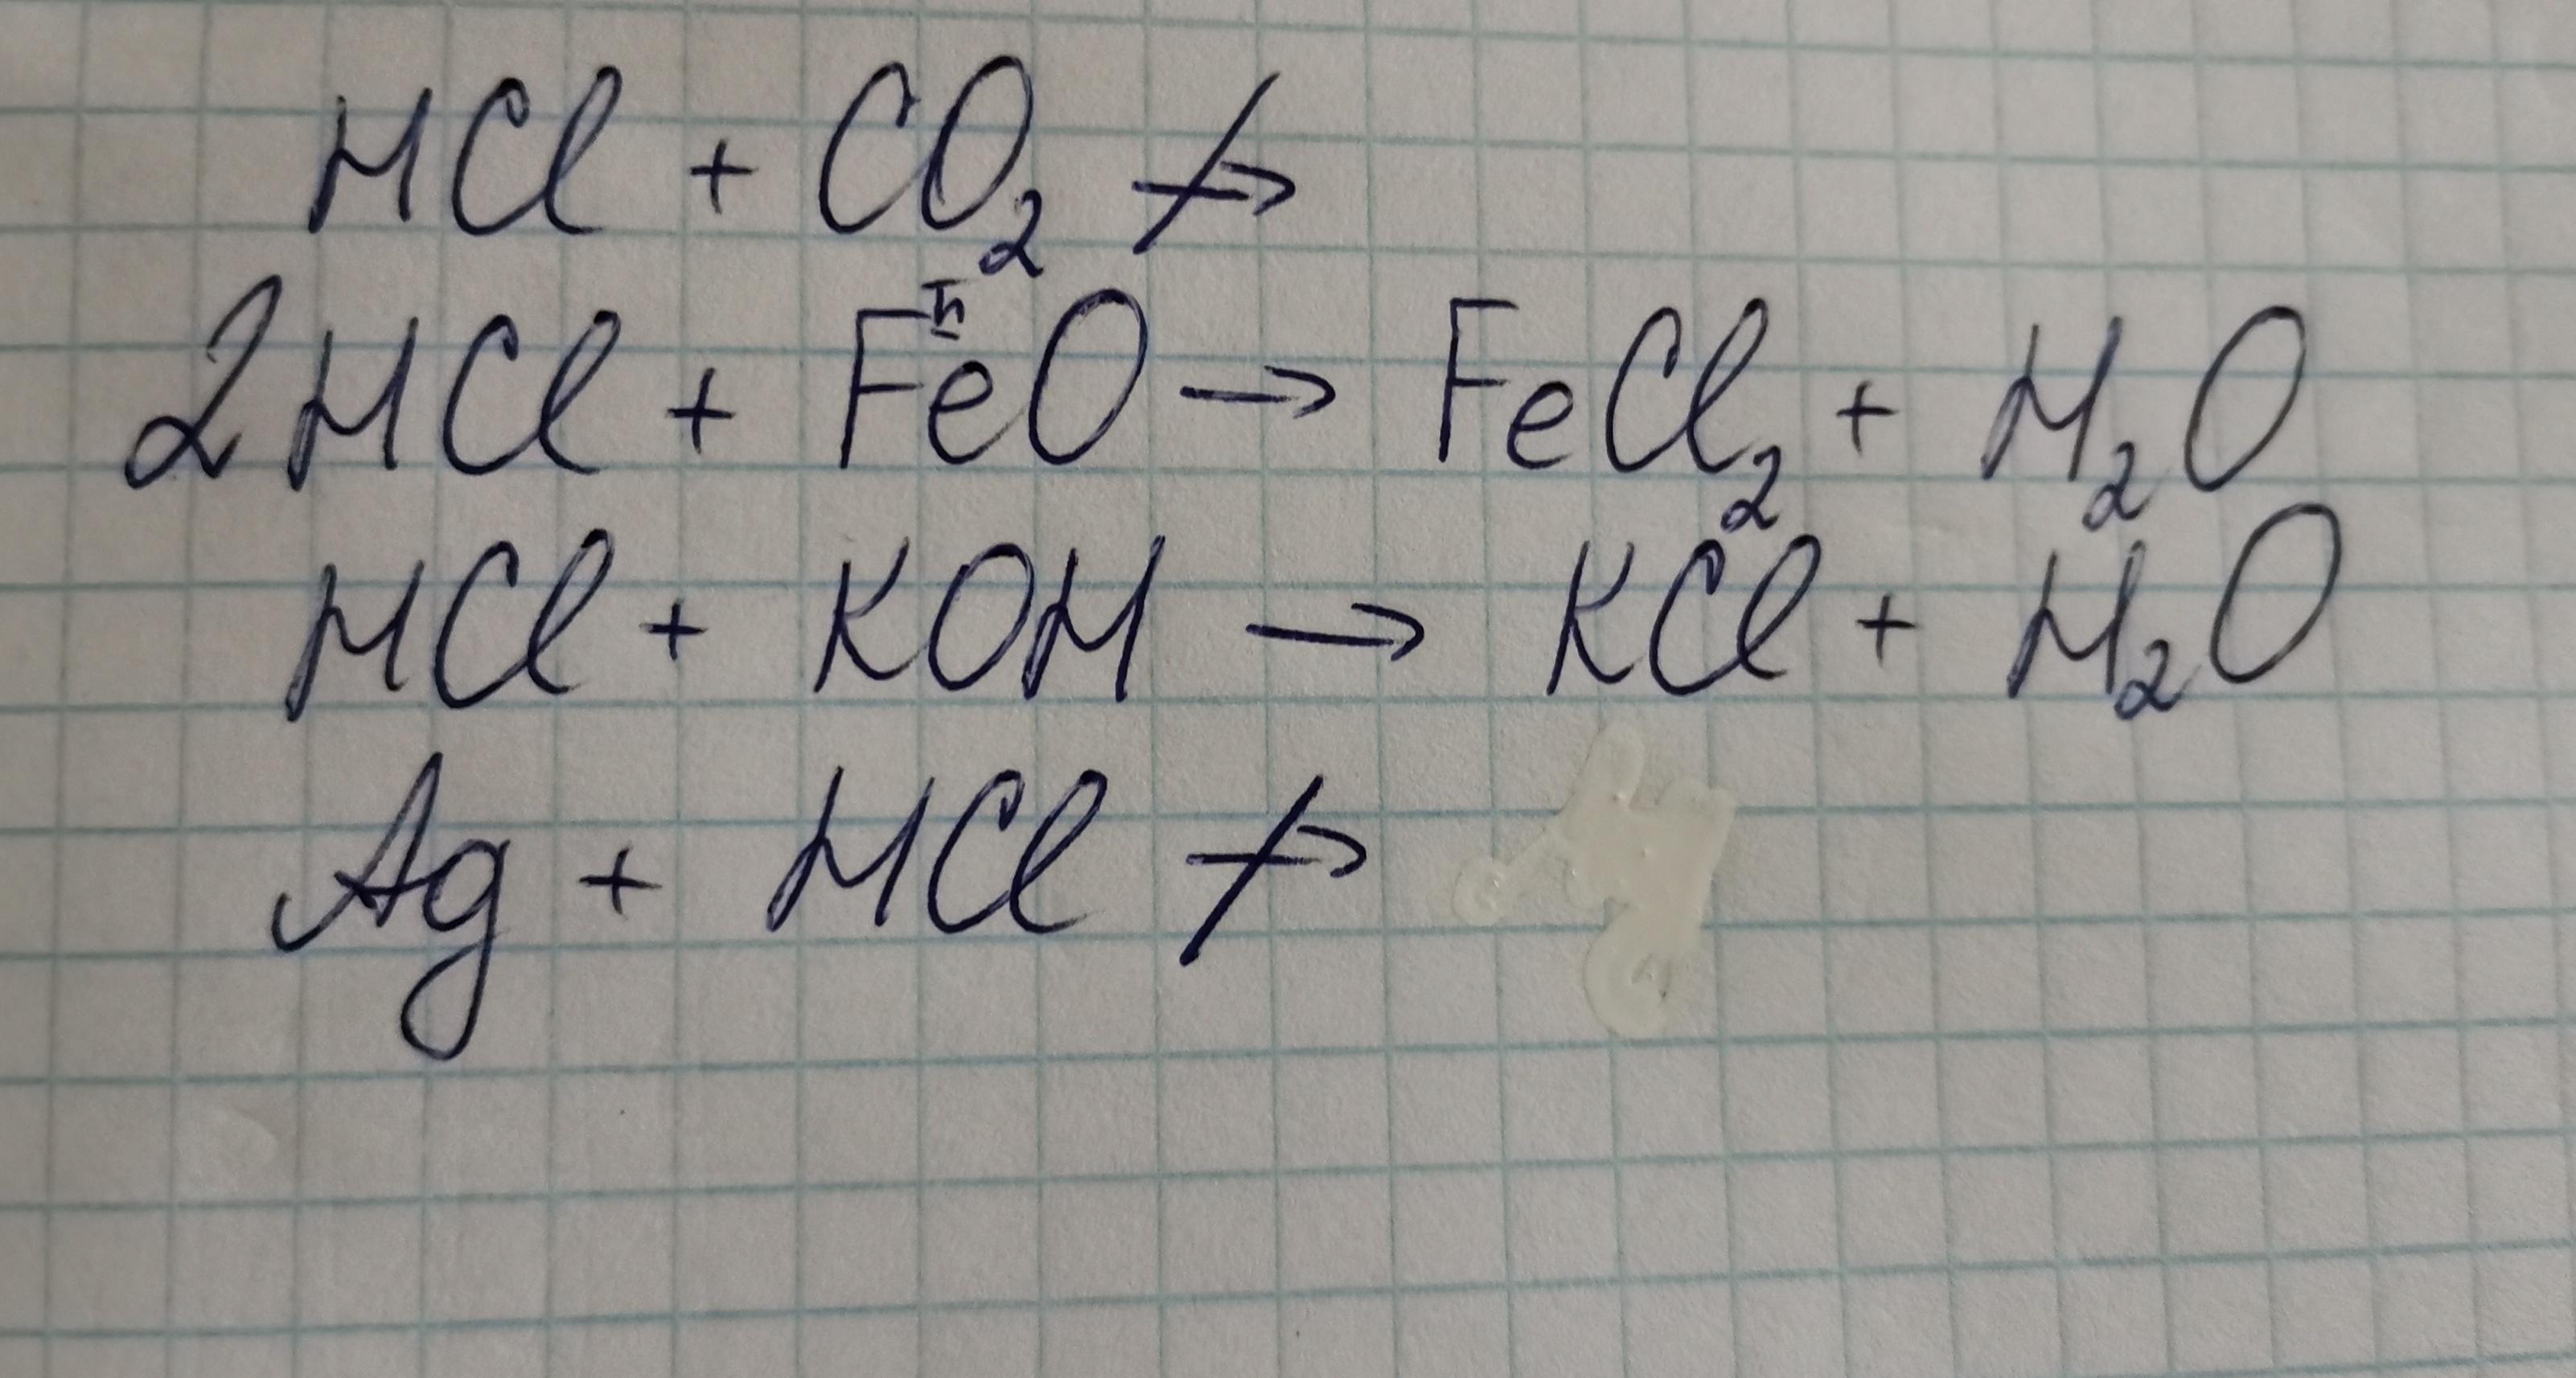 HCl + CO₂ ↛
2HCl + FeᴵᴵO → FeCl₂ + H₂O
HCl + KOH → KCl + H₂O
Ag + HCl ↛